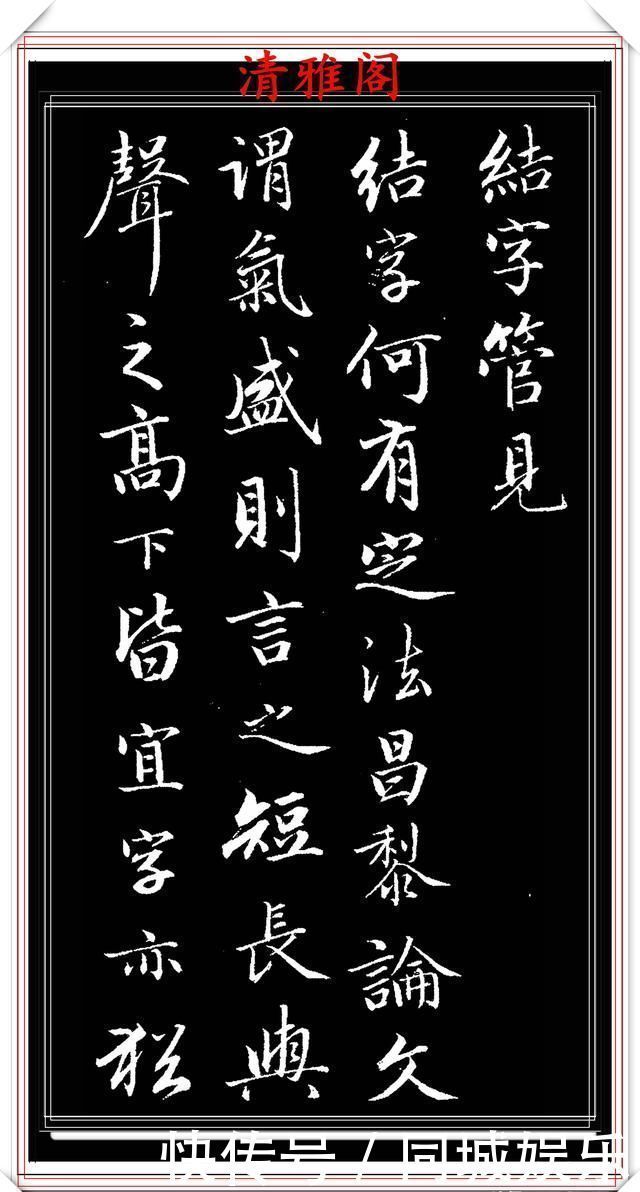 清雅阁
結字管見
結字何有定法昌黎論文
謂氣盛則言之短長與
聲之高下皆宜字亦猶
快传号/同城娱乐